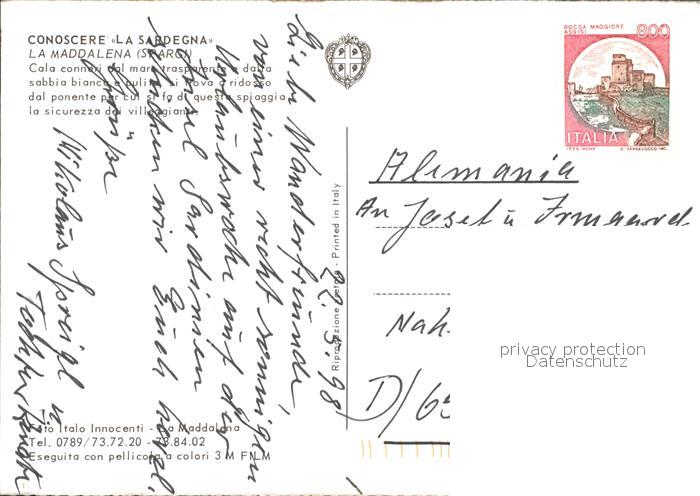 CONOSCERE «LA SARDEGNA»
LA MADDALENA (SPARGI)
Cala conneri dal mare trasparente e dalla
sabbia bianca e pulita, si trova a ridosso
dal ponente per cui si fa di questa spiaggia
la sicurezza dei villeggianti.
ROCCA MAGGIORE
ASSISI
800
ITALIA
I.P.Z.S. ROMA
Riproduzione vietata - Printed in Italy
22. 5. 98
Liebe Wanderfreunde,
von einer recht sonnigen
Urlaubswoche auf der
Insel Sardinien
senden wir Euch herzl.
Grüße
Nikolaus Sporigl u.
Alemania
An Josef u Irmgard
Nah
D/65
privacy protection
Datenschutz
Foto Italo Innocenti - La Maddalena
Tel. 0789/73.72.20 - 73.84.02
Eseguita con pellicola a colori 3 M FILM